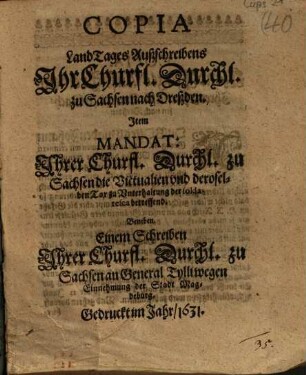 COPIA
LandTages Außschreibens
Ihr Churfl. Durchl.
zu Sachsen nach Dreßden.
Item
MANDAT:
Ihrer Churfl. Durchl. zu
Sachsen die Victualien vnd derosel-
ben Tax zu Vnterhaltung der solda-
tesca betreffend.
Beneben
Einem Schreiben
Ihrer Churfl. Durchl. zu
Sachsen an General Tylli wegen
Einnehmung der Stadt Mag-
deburg.
Gedruckt im Jahr / 1631.
35.